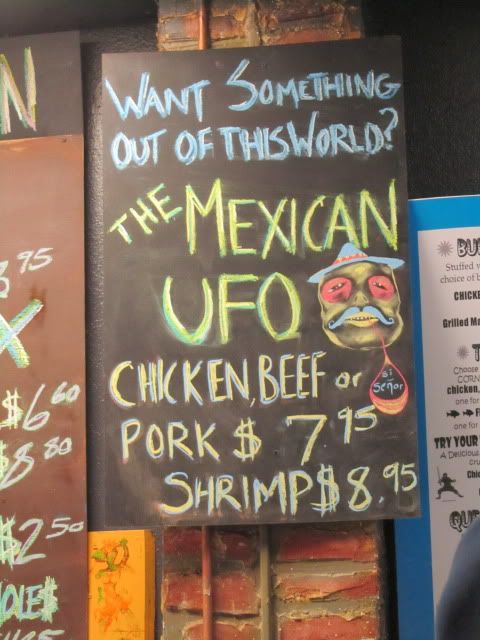 WANT SOMETHING
OUT OF THIS WORLD?
THE MEXICAN
UFO
CHICKEN, BEEF or
PORK $ 7.95
SHRIMP $8.95
Sí
Señor
N
95
X
$6 60
$8 80
$2 50
OLE$
Stuffed
choice of b
CHICKE
Grilled Ma
Choose
CORN
chicken,
one for
one for
TRY YOUR
A Delicious,
Chi